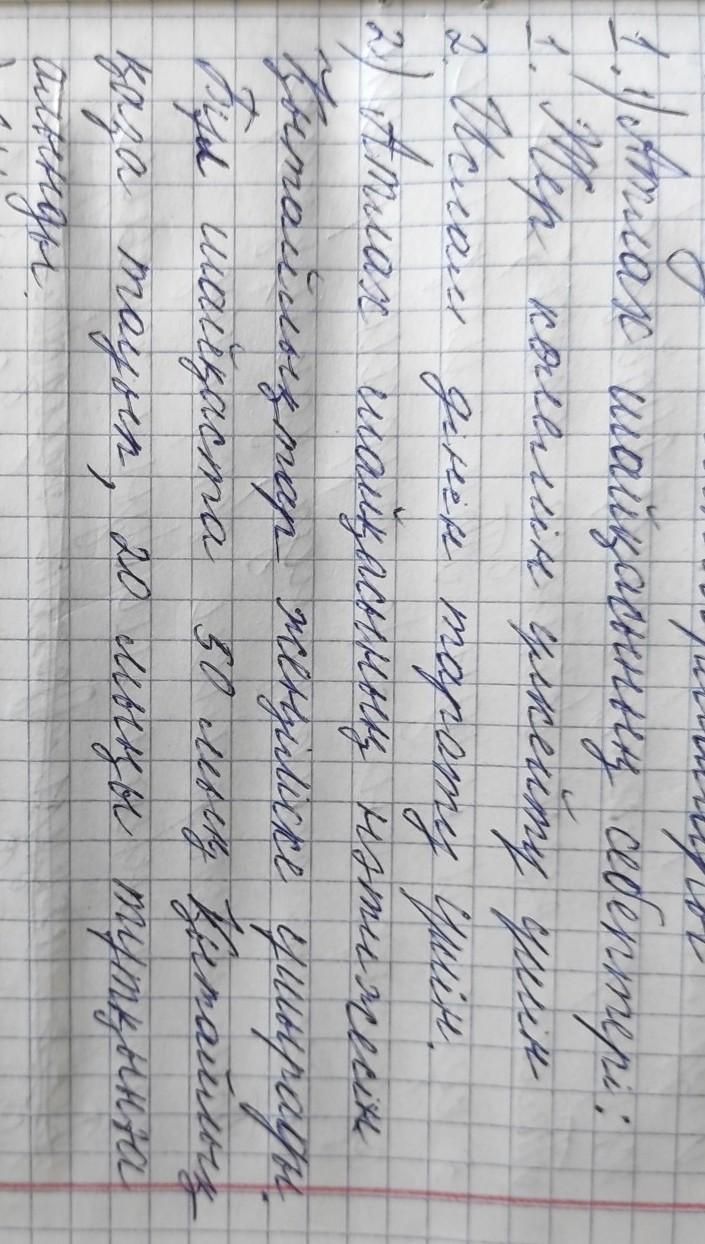 1. 1) Атлах шайқасының себептері:
1. Жер көлемін ұлкейту ушін
2. Ислам дінін тарату ушін.
2) Атлах шайқасының нәтижесін
Қытайлықтар жеңіліске ушырады.
Бұл шайқаста 50 мың Қытайлық
қаза тауып, 20 мыңы тұтқынға
алынды.